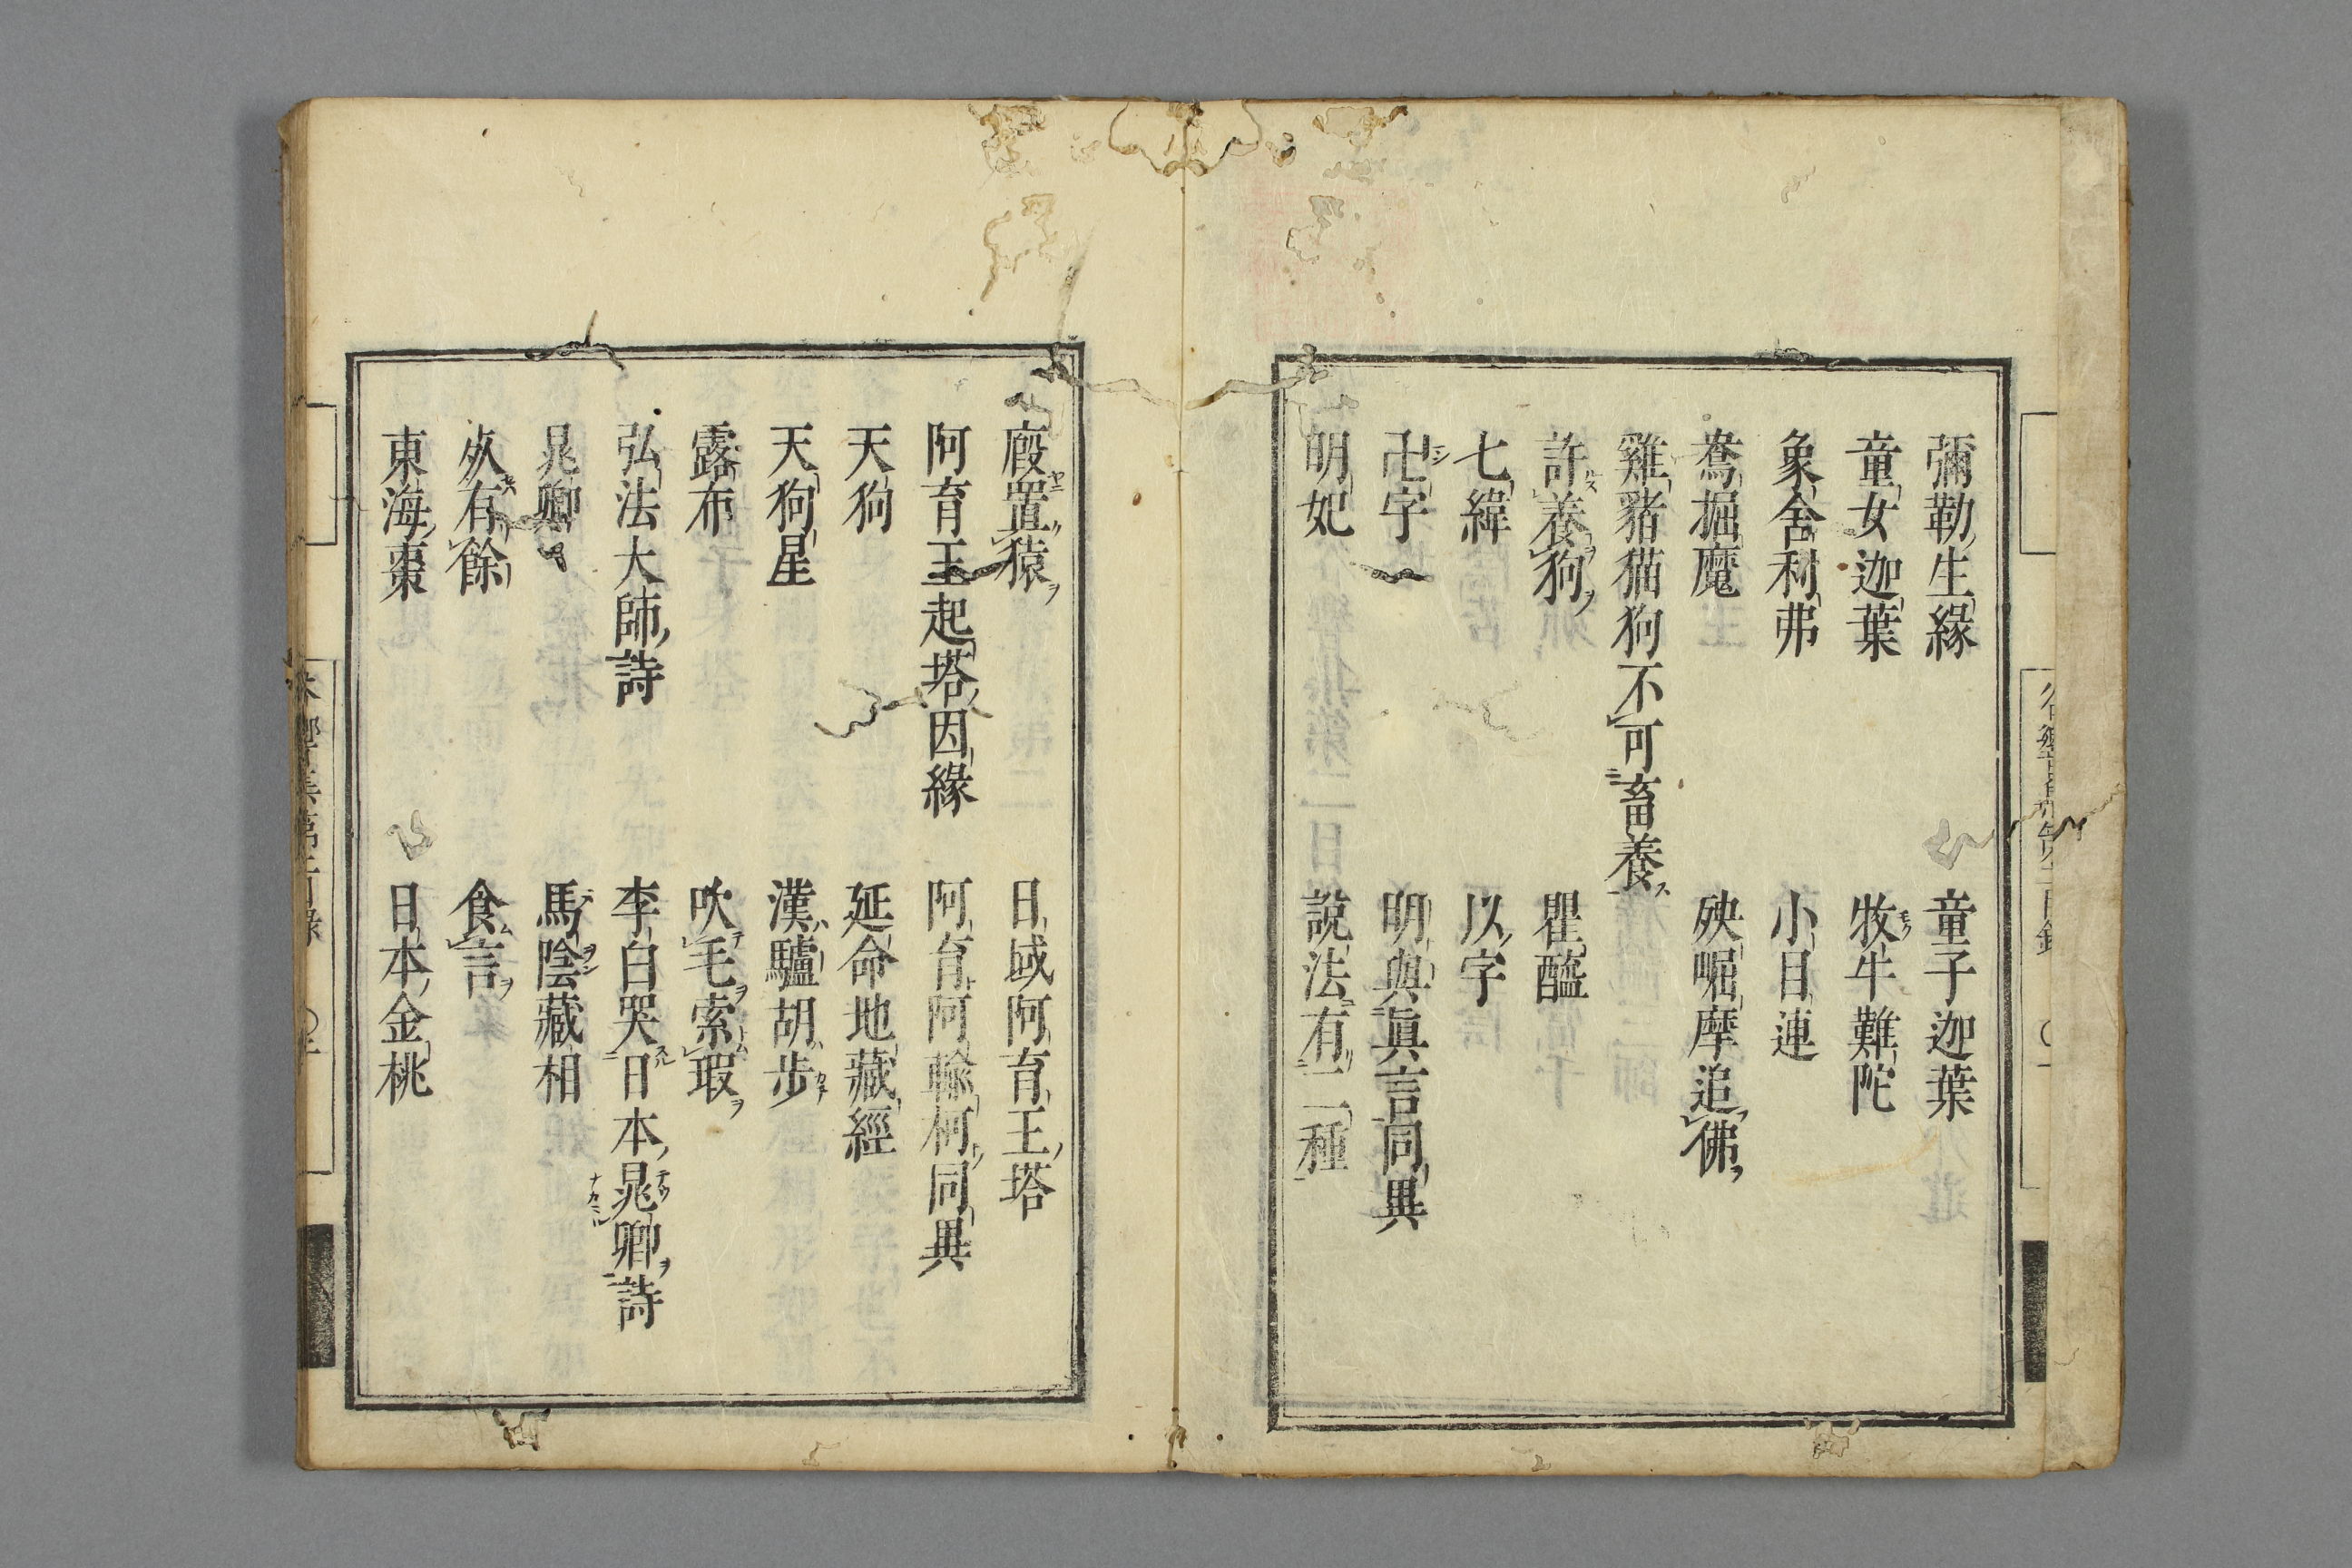 彌勒生緣　童子迦葉
童女迦葉　牧牛難陀
象舍利弗　小目連
鴦掘魔　殃崛摩追佛
雞豬猫狗不可畜養
許養狗　瞿醯
七緯　以字
卍字　明與眞言同異
明妃　說法有二種
廄置猿　日域阿育王塔
阿育王起塔因緣　阿育阿輸柯同異
天狗　延命地藏經
天狗星　漢驢胡步
露布　吹毛索瑕
弘法大師詩　李白哭日本晁卿詩
晁卿　馬陰藏相
夾有餘　食言
東海棗　日本金桃